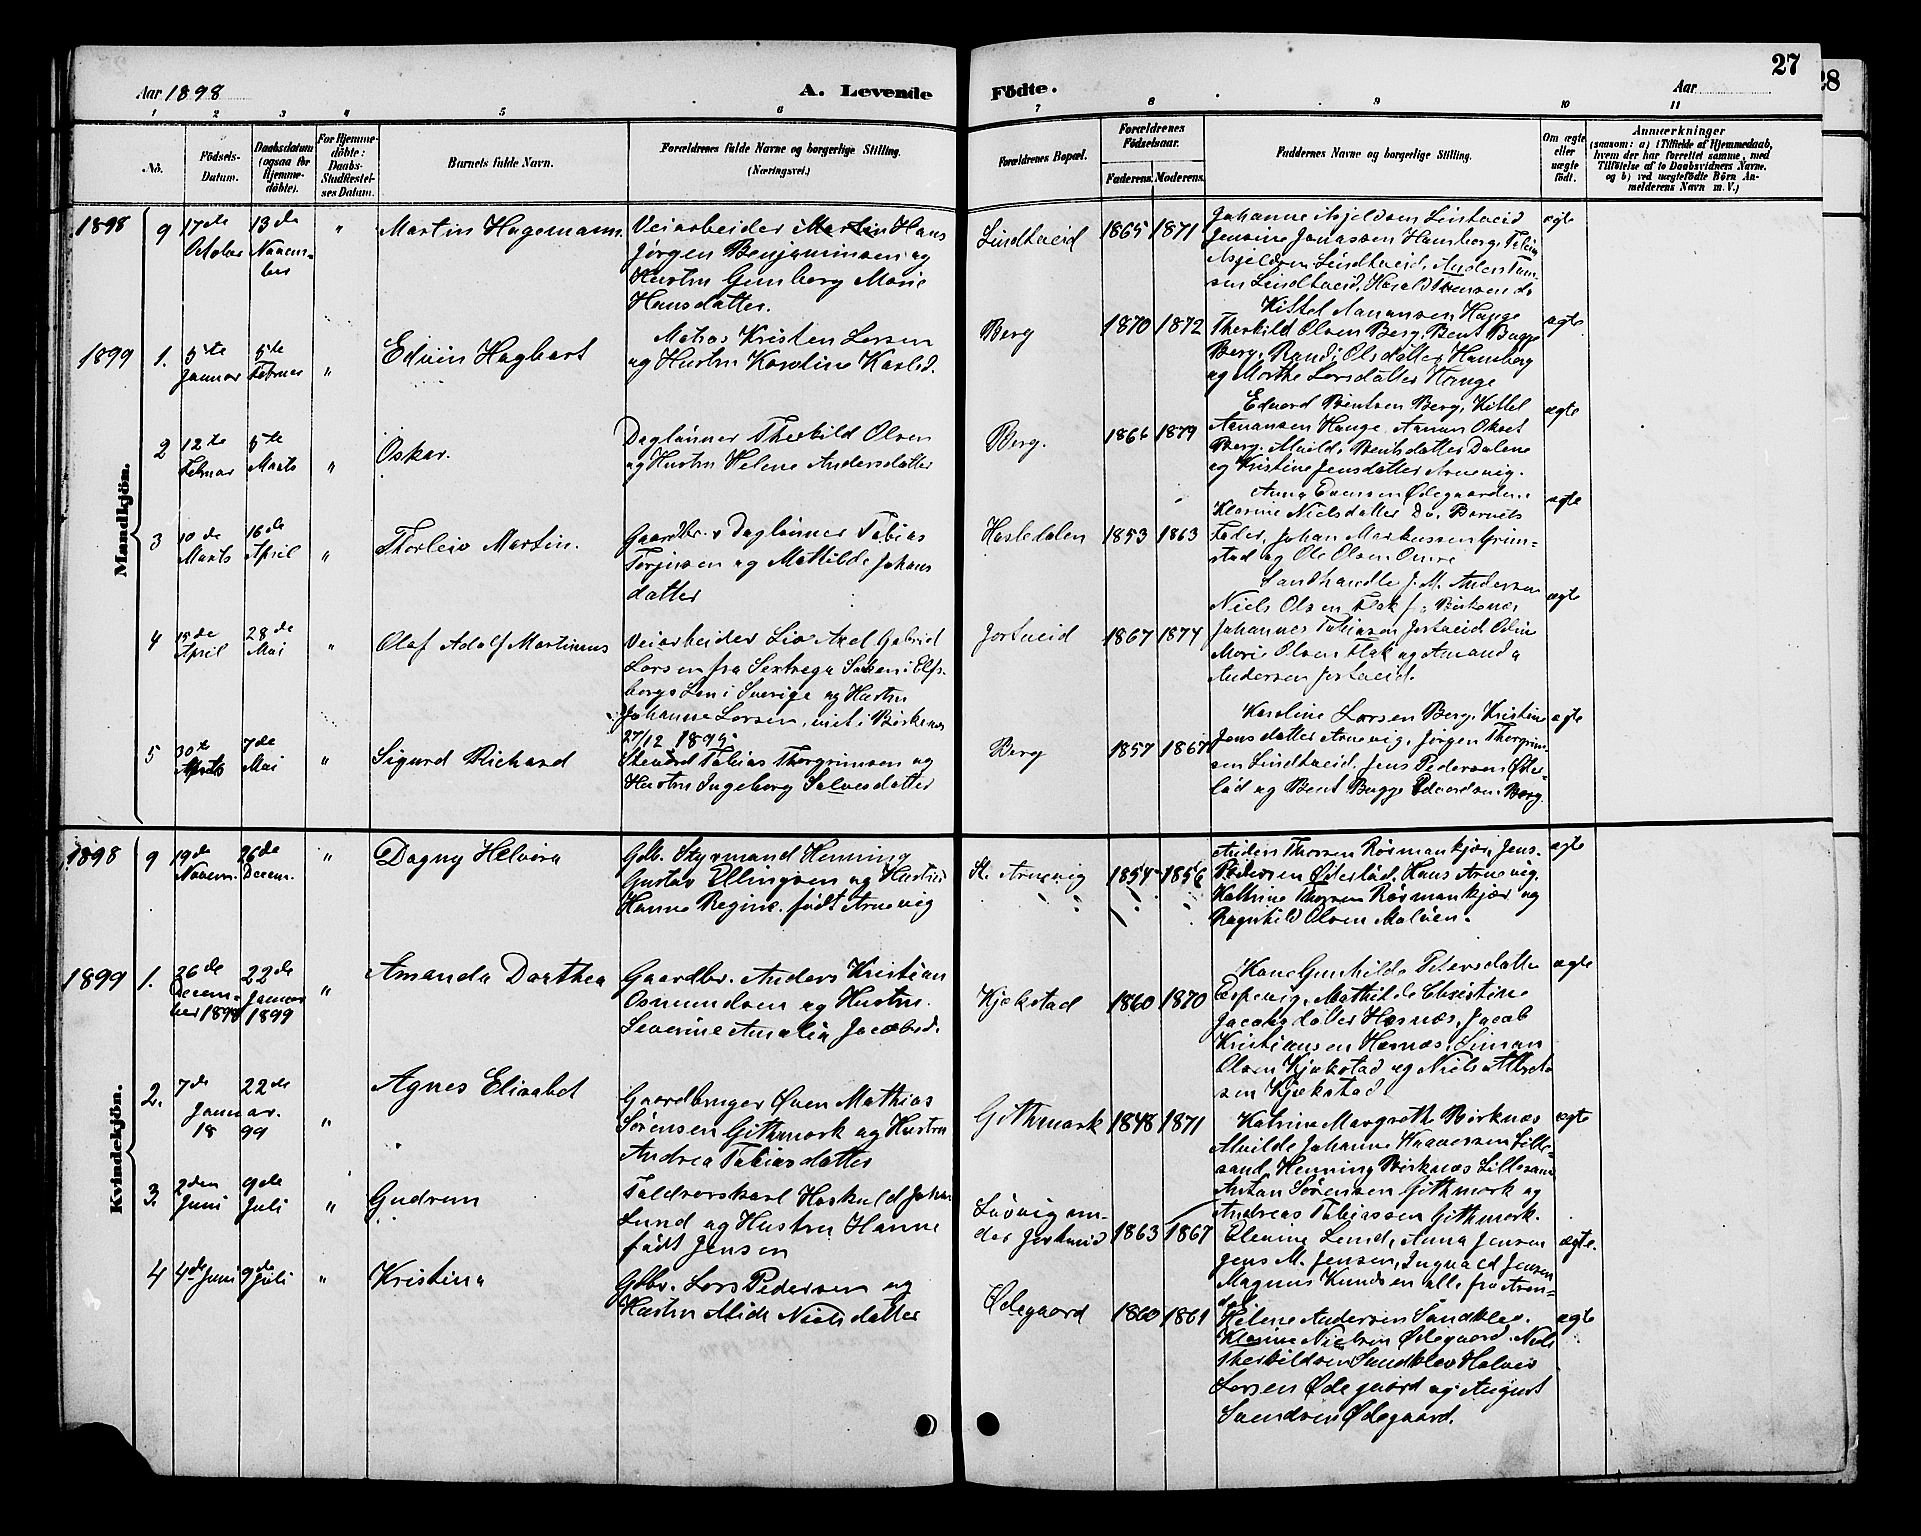 Aar 1898
A. Levende
Födte.
Aar
27
28
1 2 3 4 5 6 7 8 9 10 11
No.
Födsels-Datum.
Daabsdatum (ogsaa for Hjemmedöbte).
For Hjemmedöbte: Daabs-Stadfestelses Datum.
Barnets fulde Navn.
Forældrenes fulde Navne og borgerlige Stilling. (Næringsvei.)
Forældrenes Bopæl.
Forældrenes Födselsaar.
Faderens. Moderens.
Faddernes Navne og borgerlige Stilling.
Om ægte eller uægte födt.
Anmærkninger
(saasom: a) i Tilfælde af Hjemmedaab, hvem der har forrettet samme, med Tilföielse af to Daabsvidners Navne, og b) ved uægtefödte Börn Anmelderens Navn m. V.)
Mandkjön.
1898 9 17de October 13de Novem-ber " Martin Hagemann
Veiarbeider Hans
Jørgen Benjaminsen og
Hustru Gunborg Marie
Hansdatter.
Lindtveid 1865 1871
Johanne Asjeldsen Lindtveid
Jensine Jonassen Hamberg,
Asjeldsen Lindtveid, Anders
sen Lindtveid, Harald Jensen do
ægte
1899 1. 5te Januar 5te Februar " Edvin Hagbart
Matros Kristen Larsen
og Hustru Karoline Kasled.
Berg 1870 1872
Kittel Aanansen Hauge
Therkild Olsen Berg, Bent Bugge
Berg, Randi Olsdatter Hamberg
og Marthe Larsdatter Hauge
ægte
2 12te Februar 5te Marts " Oskar.
Daglönner Therkild Olsen
og Hustru Helene Andersdatter
Berg. 1866 1879
Edvard Bentsen Berg, Kittel
Aanansen Hauge, Aanan
Berg, Alvild Bentsdatter Dalene
og Kristine Jensdatter Arnevig.
ægte
3 10de Marts 16de April " Thorleiv Martin.
Gaardbr. & Daglønner Tobias
Terjusen og Mathilde Johans
datter
Hasledalen 1853 1863
Anna Evensen Ødegaarden,
Klarine Nielsdatter Do. Barnets
Fader, Johan Markussen Grim-
stad og Ole Olsen Omre
ægte
4 15de April 28de Mai " Olaf Adolf Martinius
Veiarbeider Axel Gabriel
Larsen fra Sextrega Soken i Elfs-
borgs Len i Sverige og Hustru
Johanne Larsen, viet i Birkenes
27/12 1895
Jortveid 1867 1874
Landhandler J. M. Andersen
Niels Olsen Flak f. Birkenes
Johannes Tobiassen Jortveid Odine
Marie Olsen Flak og Amanda
Andersen Jortveid.
ægte
5 30te April 7de Mai " Sigurd Richard
Steward Tobias Thorgrimsen og
Hustru Ingeborg Salvesdatter
Berg 1857 1867
Karoline Larsen Berg, Kristine
Jensdatter Arnevig, Jørgen Thorgrim-
sen Lindtveid, Jens Pedersen Øde-
lad og Bent Bugge Edvardsen Berg.
ægte
Kvindekjön.
1898 9 19de Novem. 26de Decem. " Dagny Helvira
Gdb. Styrmand Henning
Gustav Ellingsen og Hustru
Hanne Regine, født Arnevig
St. Arnevig 1854 1856
Anders Thorsen Røsmankjær, Jens
Pedersen Ødelad, Hans Arnevig,
Kathrine Thorsen Røsmankjær og
Ragnhild Olsen Maløen.
ægte
1899 1. 26de Decem-ber 1898 22de Januar 1899 " Amanda Dorthea
Gaardbr. Anders Kristian
Osmundsen og Hustru
Severine Amalia Jacobsd.
Kjækstad 1860 1870
Hane Gunhilde Petersdatter
Espevig, Mathilde Christine
Jacobsdatter Hæsnæs, Jacob
Kristiansen Hæsnæs, Simon
Olsen Kjækstad og Niels
sen Kjækstad.
ægte
2. 7de 22de Januar. 18 99 " Agnes Elisabet
Gaardbruger Oven Mathias
Sørensen Githmark og Hustru
Andrea Tobiasdatter
Githmark 1848 1871
Katrine Margrethe Birknæs
Alvilde Johanne Lille-
sand, Henning Birknæs Lillesand
Anton Sørensen Githmark og
Andreas Tobiassen Githmark.
ægte
3. 2den Juni 9de Juli " Gudrun
Toldrorskarl Haskuld Johan
Lund og Hustru Hanne
født Jensen
Løvvig un-
der Jortveid 1863 1867
Elevine Lund, Anna Jensen
Jens M. Jensen, Ingvald Jensen
Magnus Knudsen alle fra Aren-
dal
ægte.
4 4de Juni 9de Juli " Kristina
Gdbr. Lars Pedersen og
Hustru Alida Nielsdatter
Ødegaard 1860 1861
Helene Andersen Sandklev.
Klarine Nielsen Ødegaard. Niels
Therkildsen Sandklev Halvor
Larsen Ødegaard og August
Svendsen Ødegaard.
ægte